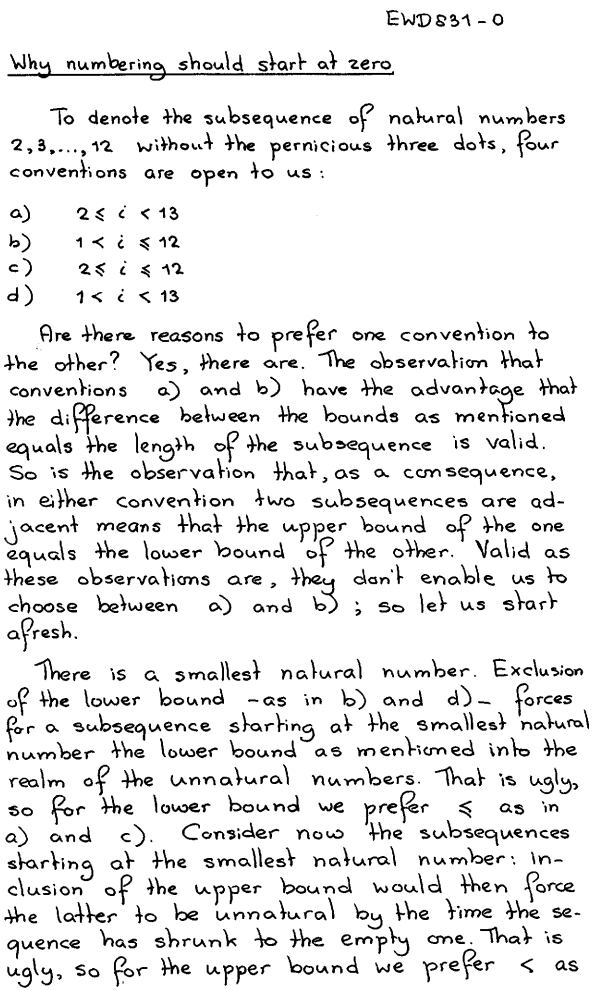 EWD831-0
Why numbering should start at zero
To denote the subsequence of natural numbers
2,3,...,12 without the pernicious three dots, four
conventions are open to us:
a) 2 ≤ i < 13
b) 1 < i ≤ 12
c) 2 ≤ i ≤ 12
d) 1 < i < 13
Are there reasons to prefer one convention to
the other? Yes, there are. The observation that
conventions a) and b) have the advantage that
the difference between the bounds as mentioned
equals the length of the subsequence is valid.
So is the observation that, as a consequence,
in either convention two subsequences are ad-
jacent means that the upper bound of the one
equals the lower bound of the other. Valid as
these observations are, they don't enable us to
choose between a) and b); so let us start
afresh.
There is a smallest natural number. Exclusion
of the lower bound -as in b) and d)- forces
for a subsequence starting at the smallest natural
number the lower bound as mentioned into the
realm of the unnatural numbers. That is ugly,
so for the lower bound we prefer ≤ as in
a) and c). Consider now the subsequences
starting at the smallest natural number: in-
clusion of the upper bound would then force
the latter to be unnatural by the time the se-
quence has shrunk to the empty one. That is
ugly, so for the upper bound we prefer < as